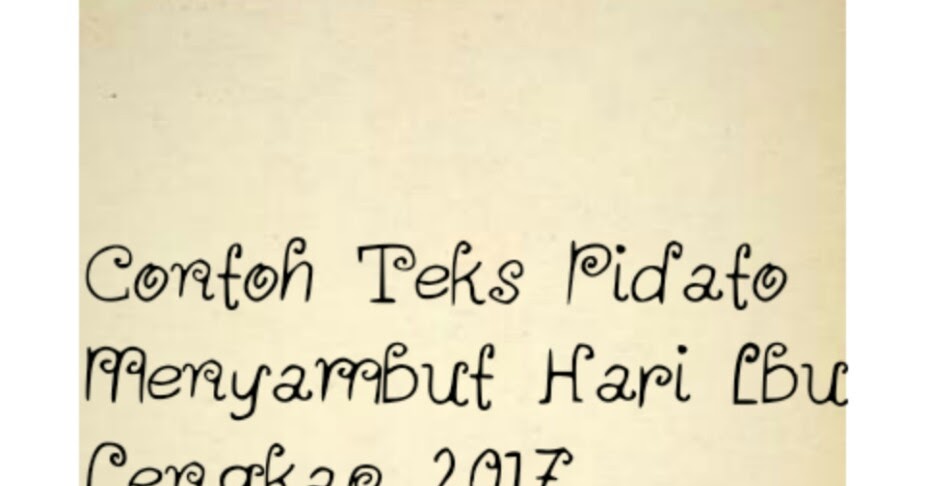 Contoh Teks Pidato
Menyambut Hari Ibu
Lengkap 2017